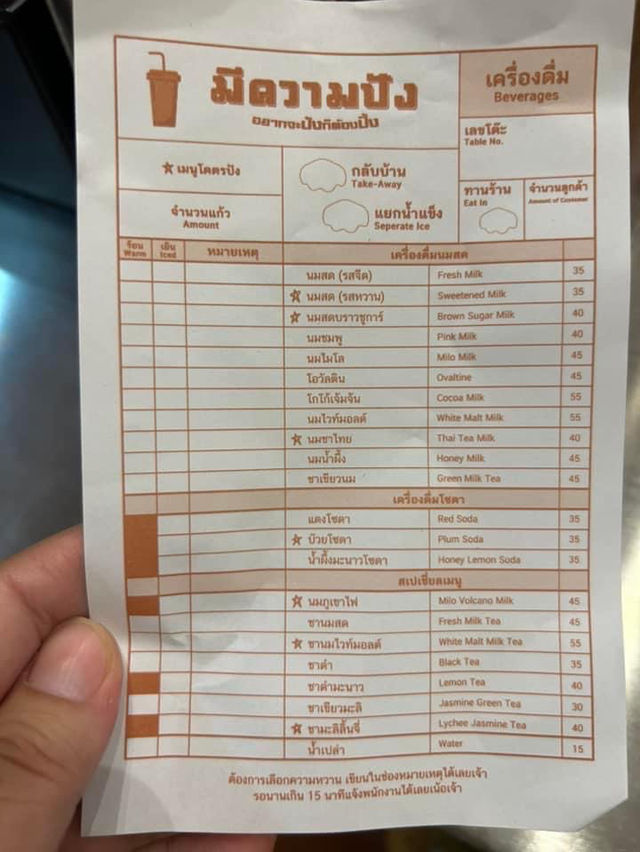 มีความปัง
อยากจะปังก็ต้องปิ้ง
เครื่องดื่ม
Beverages
เลขโต๊ะ
Table No.
★ เมนูโคตรปัง
กลับบ้าน
Take-Away
ทานร้าน
Eat In
จำนวนลูกค้า
Amount of Customer
จำนวนแก้ว
Amount
แยกน้ำแข็ง
Seperate Ice
ร้อน
Warm
เย็น
Iced
หมายเหตุ
เครื่องดื่มนมสด
นมสด (รสจืด) Fresh Milk 35
★ นมสด (รสหวาน) Sweetened Milk 35
★ นมสดบราวชูการ์ Brown Sugar Milk 40
นมชมพู Pink Milk 40
นมไมโล Milo Milk 45
โอวัลติน Ovaltine 45
โกโก้เจ้มจ้น Cocoa Milk 55
นมไวท์มอลต์ White Malt Milk 55
★ นมชาไทย Thai Tea Milk 40
นมน้ำผึ้ง Honey Milk 45
ชาเขียวนม Green Milk Tea 45
เครื่องดื่มโซดา
แดงโซดา Red Soda 35
★ บ๊วยโซดา Plum Soda 35
น้ำผึ้งมะนาวโซดา Honey Lemon Soda 35
สเปเชี่ยลเมนู
★ นมภูเขาไฟ Milo Volcano Milk 45
ชานมสด Fresh Milk Tea 45
★ ชานมไวท์มอลต์ White Malt Milk Tea 55
ชาดำ Black Tea 35
ชาดำมะนาว Lemon Tea 40
ชาเขียวมะลิ Jasmine Green Tea 30
★ ชามะลิลิ้นจี่ Lychee Jasmine Tea 40
น้ำเปล่า Water 15
ต้องการเลือกความหวาน เขียนในช่องหมายเหตุได้เลยเจ้า
รอนานเกิน 15 นาทีแจ้งพนักงานได้เลยเน้อเจ้า